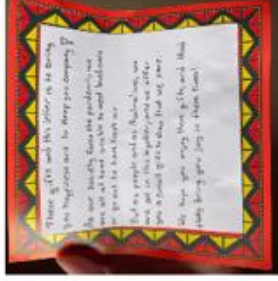 These gifts and this letter is to bring
you happiness and to keep you company
As our society faces the pandemic, we
are all at home unable to meet
or go out to have fresh air
But as people and as we
are all in this together, and we offer
you a small gift to show that we care.
We hope you enjoy these gifts, and
they bring you joy in these times!